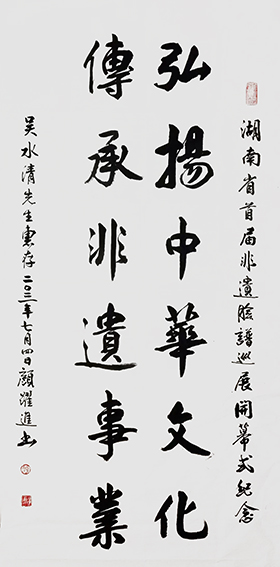 湖南省首届非遺臉譜巡展開幕式紀念
弘揚中華文化
傳承非遺事業
吴水清先生惠存二〇二三年七月四日顧躍進书